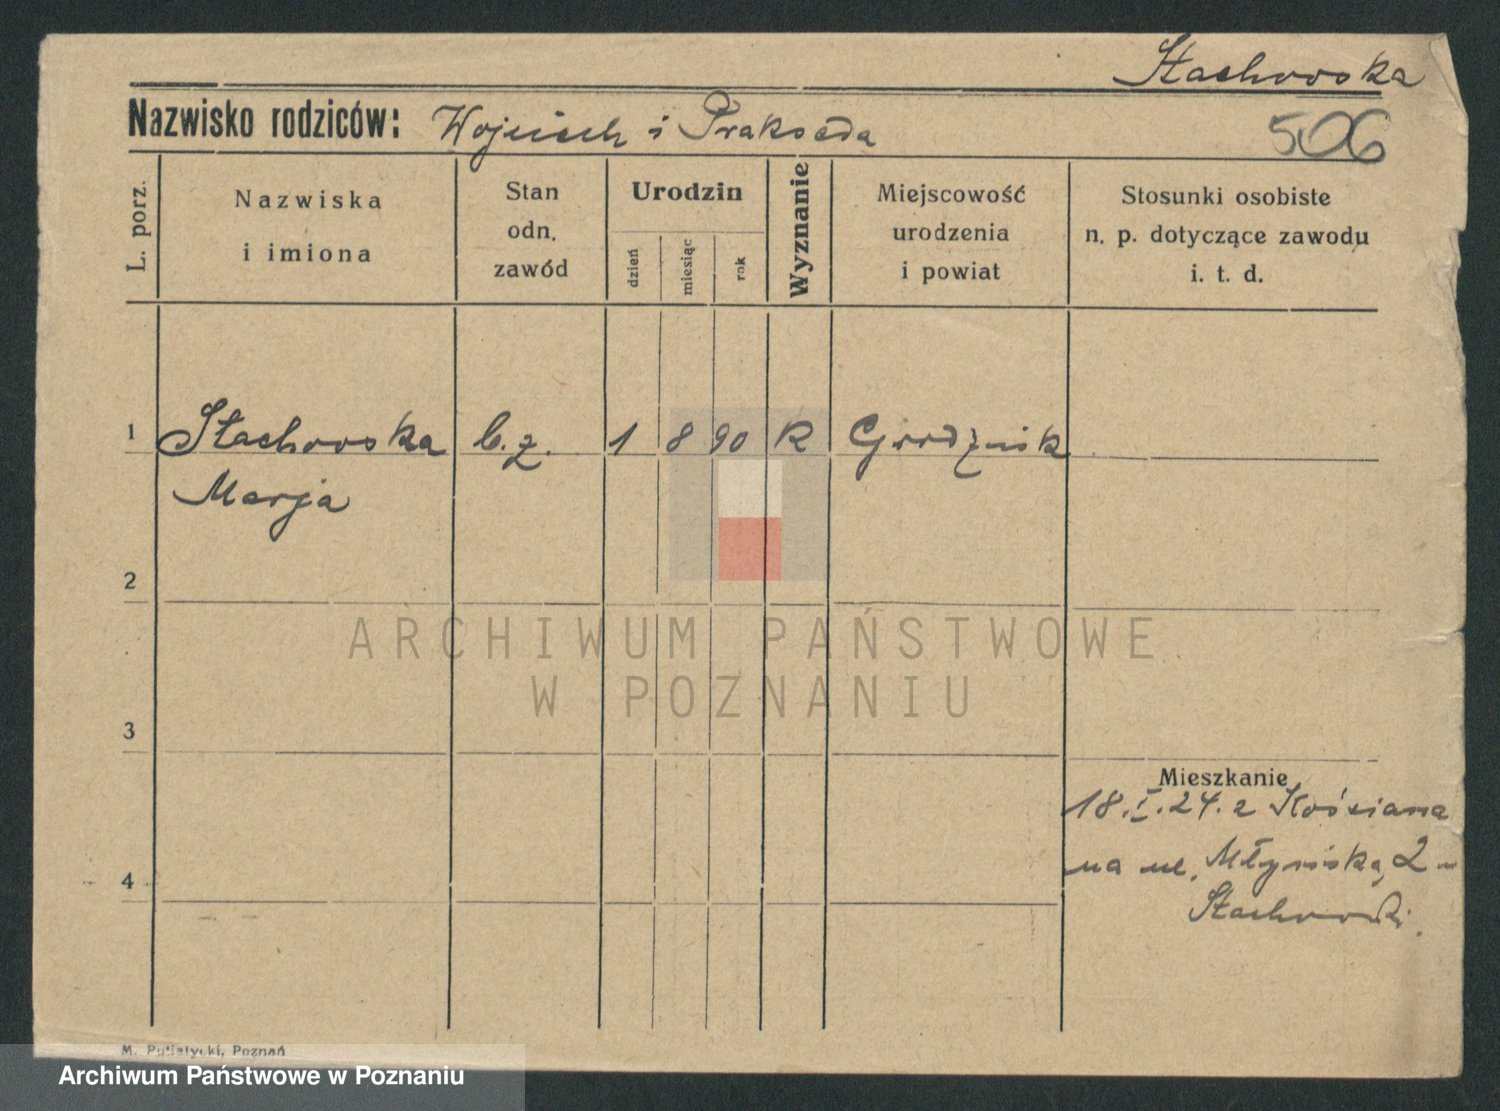 Stachowska
Nazwisko rodziców: Wojciech i Prakseda
506
L. porz.
Nazwiska
i imiona
Stan
odn.
zawód
Urodzin
dzień
miesiąc
rok
Wyznanie
Miejscowość
urodzenia
i powiat
Stosunki osobiste
n. p. dotyczące zawodu
i. t. d.
1 Stachowska b.z. 1 8 90 K Grodzisk
Marja
2
ARCHIWUM PAŃSTWOWE
W POZNANIU
3
Mieszkanie
18.I.24. z Kościana
na ul. Młyńska, 2
4
Stachowski.
M. Putiatycki, Poznań
Archiwum Państwowe w Poznaniu